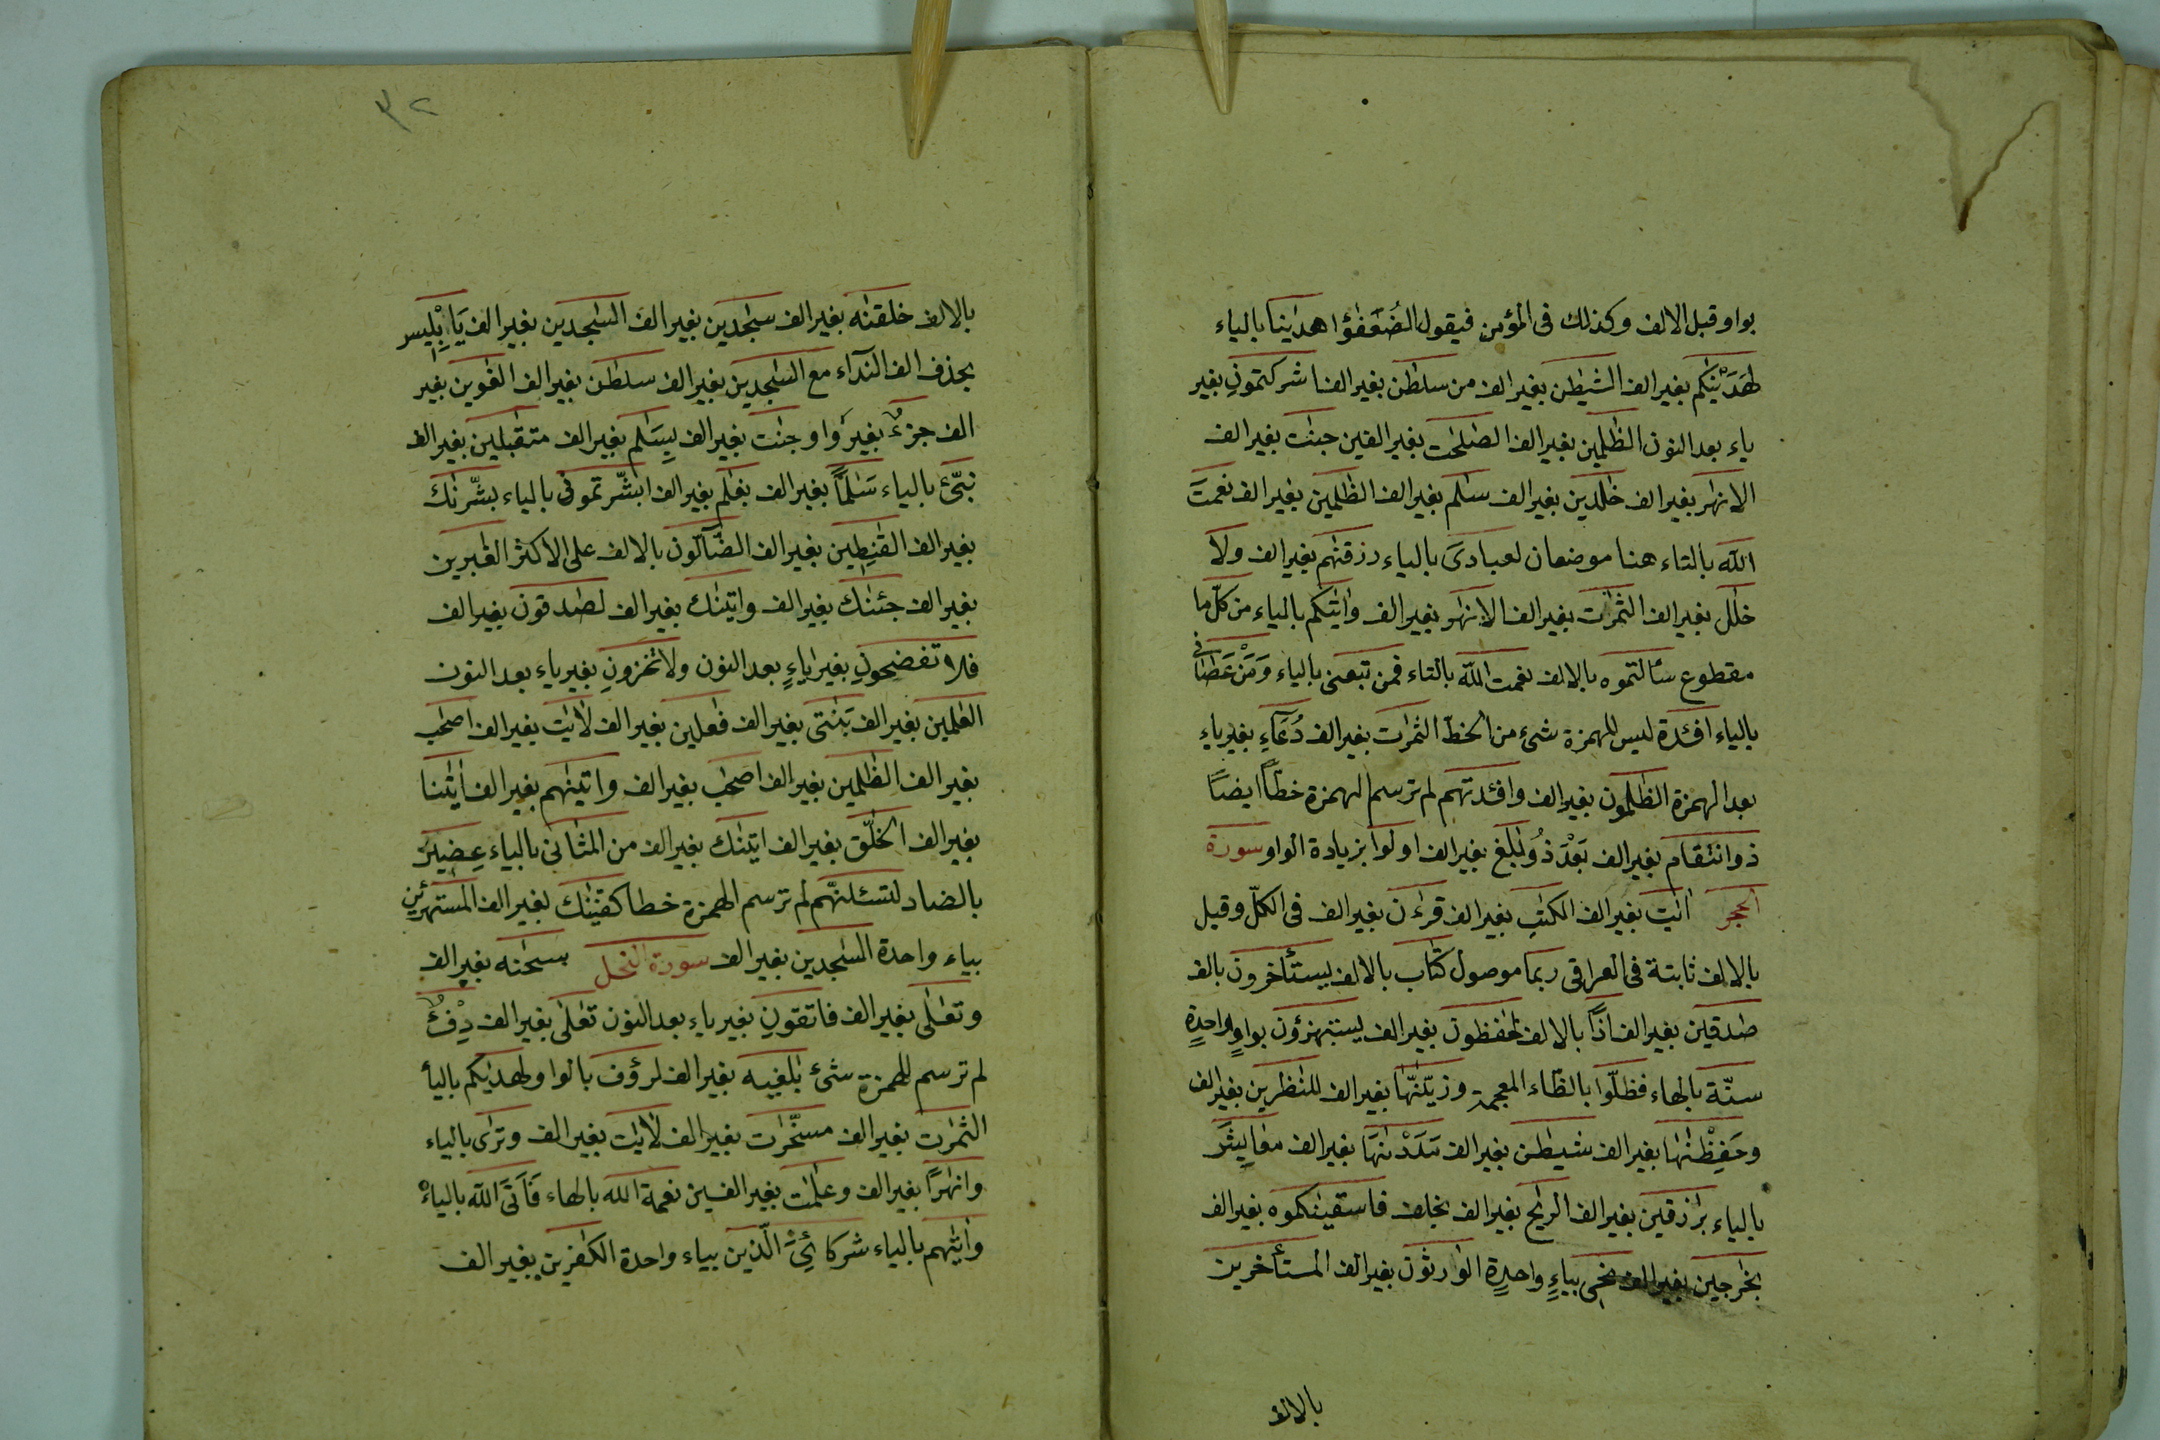 بواو قبل الالف وكذلك فى المؤمن فيقول الضُعَفٰؤا هدٰينا بالياء
لهَدَيْنٰكم بغير الف الشيطٰن بغير الف من سلطٰن بغير الف اشركتمونِ بغير
ياء بعد النون الظٰلمين بغير الف الصٰلحٰت بغير الفين جنٰت بغير الف
الانهٰر بغير الف خٰلدين بغير الف سلٰم بغير الف الظٰلمين بغير الف نعمتَ
الله بالتاء هنا موضعان لعبادىَ بالياء رزقنٰهم بغير الف ولا
خلٰل بغير الف الثمرٰت بغير الف الانهٰر بغير الف واٰتٰيكم بالياء من كلّ ما
مقطوع سألتموه بالالف نعمت الله بالتاء فمن تبعنى بالياء وَمَنْ عَصَانى
بالياء افئدة ليس للهمزة شئ من الخطّ الثمرٰت بغير الف دُعَآءِ بغير ياءٍ
بعد الهمزة الظٰلمون بغير الف وافئدتهم لم ترسم الهمزة خطًا ايضًا
ذو انتقام بغير الف بَعْدَ ذُو بلٰغ بغير الف اولوا بزيادة الواو سورة
الحجر اٰيٰت بغير الف الكتٰبِ بغير الف قرءٰن بغير الف فى الكلّ وقيل
بالالف ثابتة فى العراقى ربما موصول كتَاب بالالف يستأخرون بالف
صٰدقين بغير الف اذًا بالالف لحٰفظون بغير الف يستهزؤن بواوٍ واحدةٍ
سنّة بالهاء فظلّوا بالظاء المعجمة وزيّنّٰها بغير الف للنٰظرين بغير الف
وحَفِظْنٰهَا بغير الف شيطٰن بغير الف مَدَدْنٰهَا بغير الف معَايِشَ
بالياء برٰزقين بغير الف الريٰح بغير الف بخلف فاسقينٰكموه بغير الف
بخٰرجين بغير الف نحى بياءٍ واحدةٍ الوٰرثون بغير الف المستأخرين
بالالف
٣٢
بالالف خلقنٰه بغير الف سٰجدين بغير الف السٰجدين بغير الف يَا اِبْلِيس
بحذف الف النداء مع السٰجدين بغير الف سلطٰن بغير الف الغٰوين بغير
الف جزءٌ بغير واو جنٰت بغير الف بِسَلٰم بغير الف متقٰبلين بغير الف
نبّئ بالياء سَلٰمًا بغير الف بغلٰم بغير الف ابشّرتمونى بالياء بشّرنٰك
بغير الف القٰنِطِين بغير الف الضَّآلّون بالالف على الاكثر الغٰبرين
بغير الف جئنٰك بغير الف واتينٰك بغير الف لصٰدقون بغير الف
فلا تفضحونِ بغير ياءٍ بعد النون ولا تخزونِ بغير ياء بعد النون
العٰلمين بغير الف بَنٰتى بغير الف فٰعلين بغير الف لاٰيٰت بغير الف اصحٰب
بغير الف الظٰلمين بغير الف اصحٰب بغير الف واتينٰهم بغير الف اٰيٰتنا
بغير الف الخلّٰق بغير الف اتينٰك بغير الف من المثَانى بالياء عِضِينَ
بالضاد لنسئلنّهم لم ترسم الهمزة خطا كفينٰك بغير الف المستهزئين
بياء واحدة السٰجدين بغير الف سورة النحل سبحٰنه بغير الف
وتعٰلى بغير الف فاتقونِ بغير ياءٍ بعد النون تعٰلى بغير الف دِفْءٌ
لم ترسم للهمزة شئ بٰلغيه بغير الف لرؤف بالواو لهدٰيكم باليأ
الثمرٰت بغير الف مسخّرٰت بغير الف لاٰيٰت بغير الف وترٰى بالياء
وانهٰرًا بغير الف وعلٰمٰت بغير الفين نعمة الله بالهاء فَاَتَى الله بالياء
واتٰيهم بالياء شركائِىَ الّذين بياء واحدة الكٰفرين بغير الف